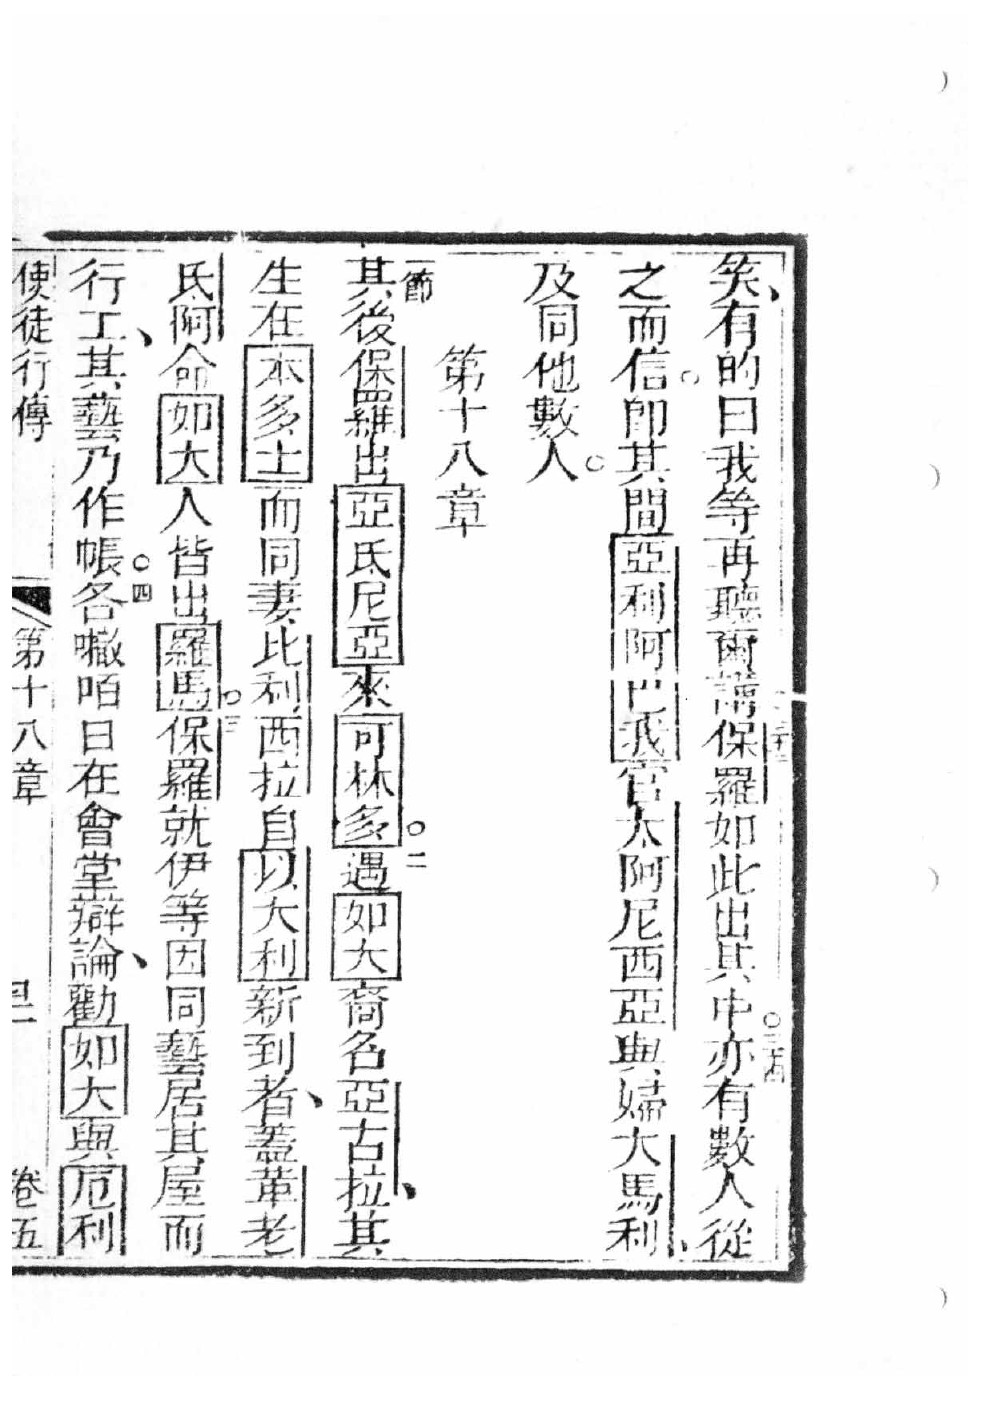 矣有的曰我等再聽爾講保羅如此出其中亦有數人從
之而信即其間亞利阿巴我官大阿尼西亞與婦大馬利
及同他數人
第十八章
一節
其後保羅出亞氏尼亞來可林多二遇如大裔名亞古拉其
生在本多士而同妻比利西拉自以大利新到者蓋革老
氏阿命如大人皆出羅馬三保羅就伊等因同藝居其屋而
行工其藝乃作帳四各𠿕咟日在會堂辯論勸如大與厄利
使徒行傳 第十八章 卷五